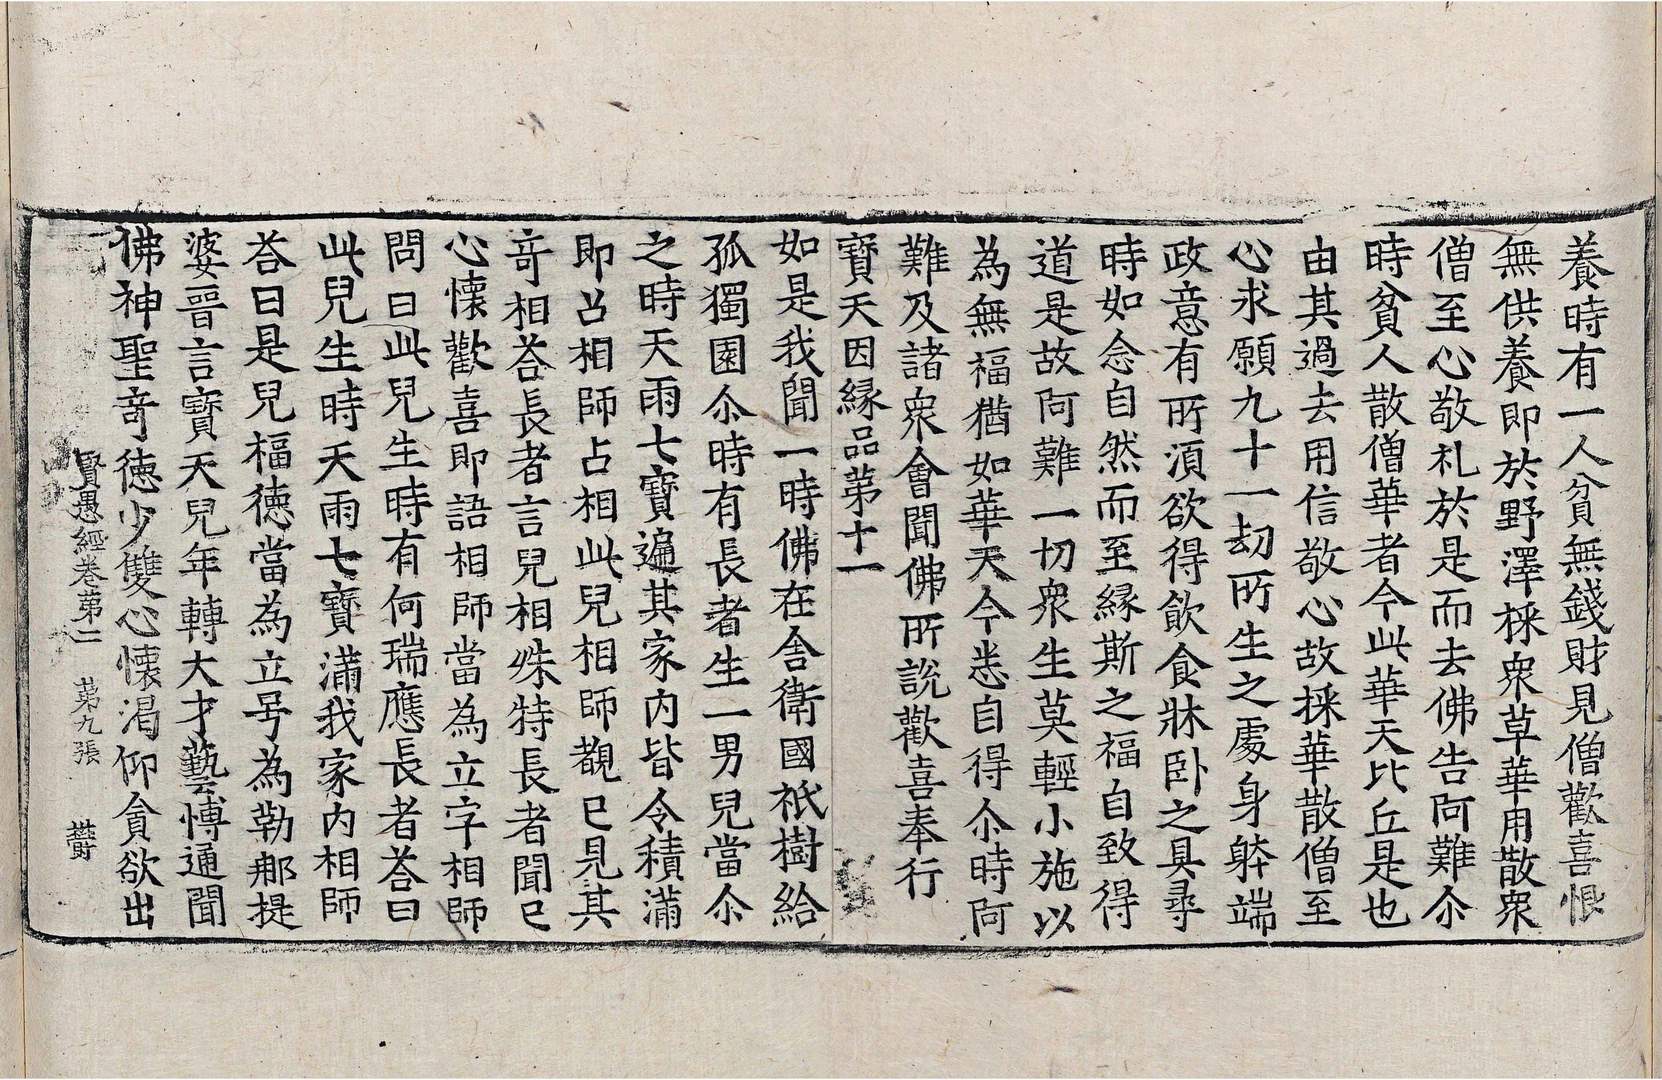 養時有一人貧無錢財見僧歡喜恨
無供養即於野澤採衆草華用散衆
僧至心敬礼於是而去佛告阿難尒
時貧人散僧華者今此華天比丘是也
由其過去用信敬心故採華散僧至
心求願九十一劫所生之處身躰端
政意有所湏欲得飲食牀卧之具尋
時如念自然而至縁斯之福自致得
道是故阿難一切衆生莫輕小施以
為無福猶如華天今悉自得尒時阿
難及諸衆會聞佛所說歡喜奉行
寳天因縁品苐十一
如是我聞一時佛在舎衛國祇樹給
孤獨園尒時有長者生一男兒當尒
之時天雨七寳遍其家内皆令積滿
即召相師占相此兒相師覩已見其
竒相荅長者言兒相殊特長者聞已
心懐歡喜即語相師當為立字相師
問曰此兒生時有何瑞應長者荅曰
此兒生時天雨七寳滿我家内相師
荅曰是兒福德當為立号為勒那提
婆晉言寳天兒年轉大才藝博通聞
佛神聖竒德少雙心懐渴仰貪欲出
賢愚經卷苐二 苐九張 欝